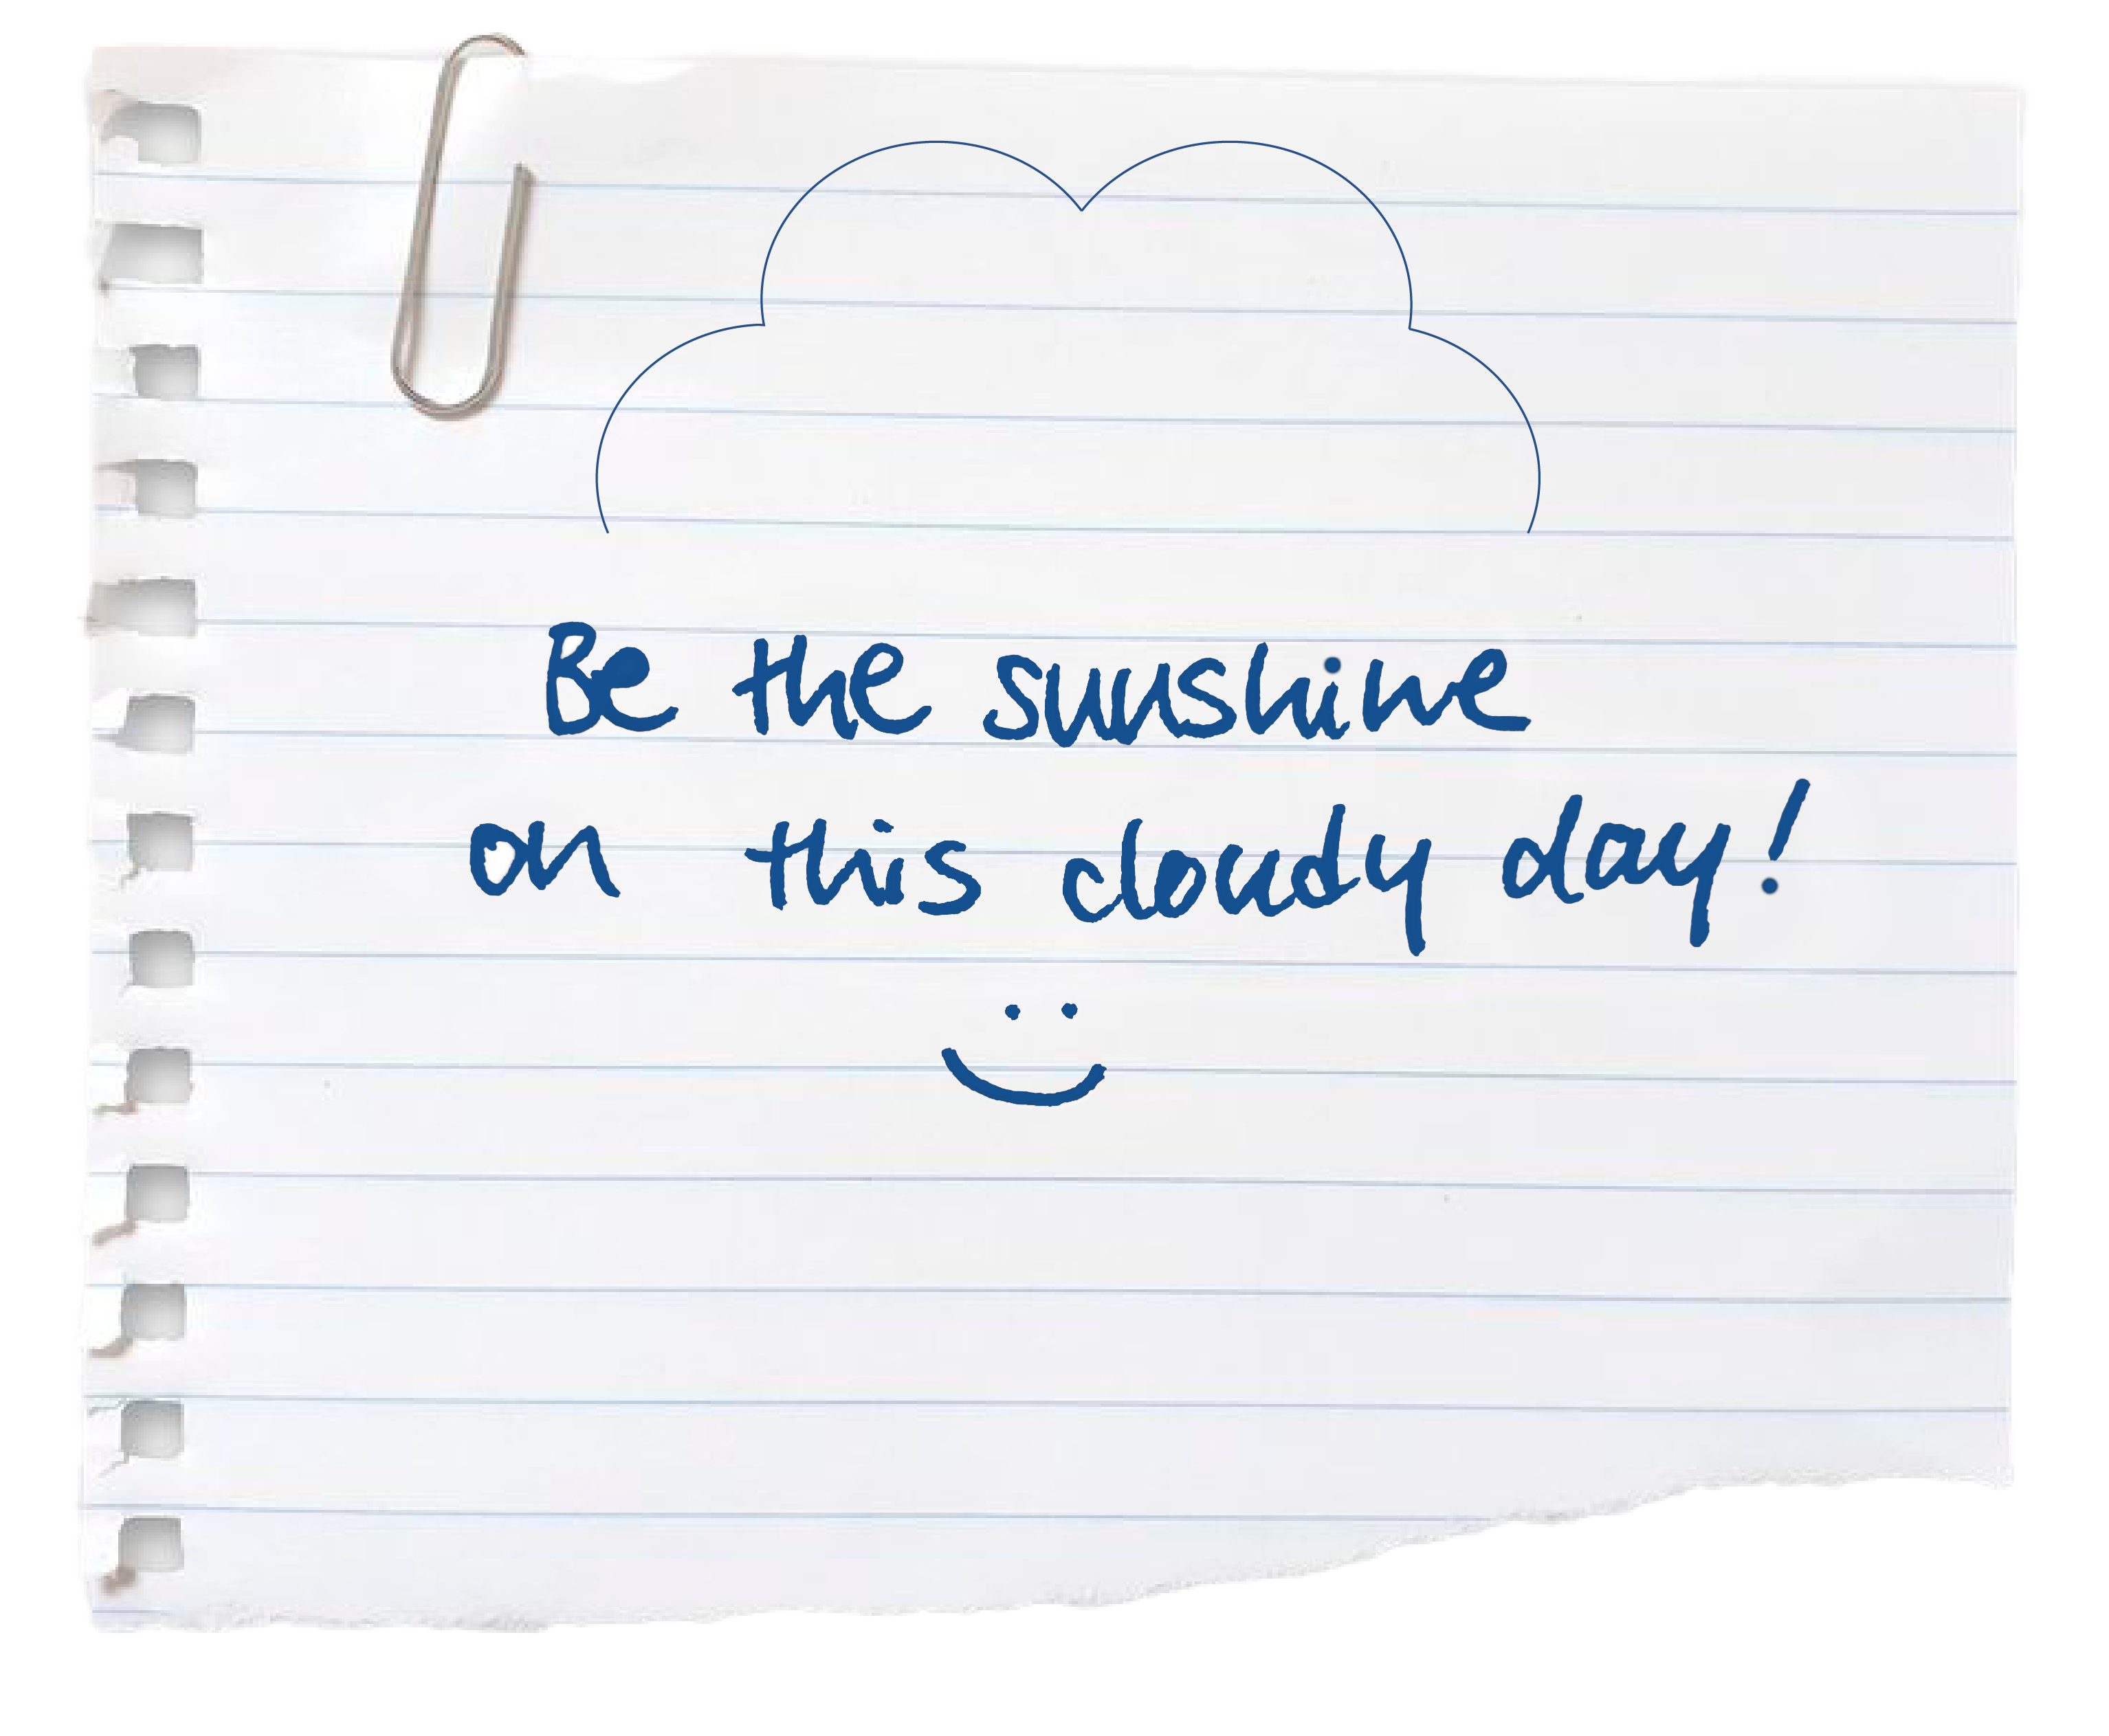 Be the sunshine
on this cloudy day!